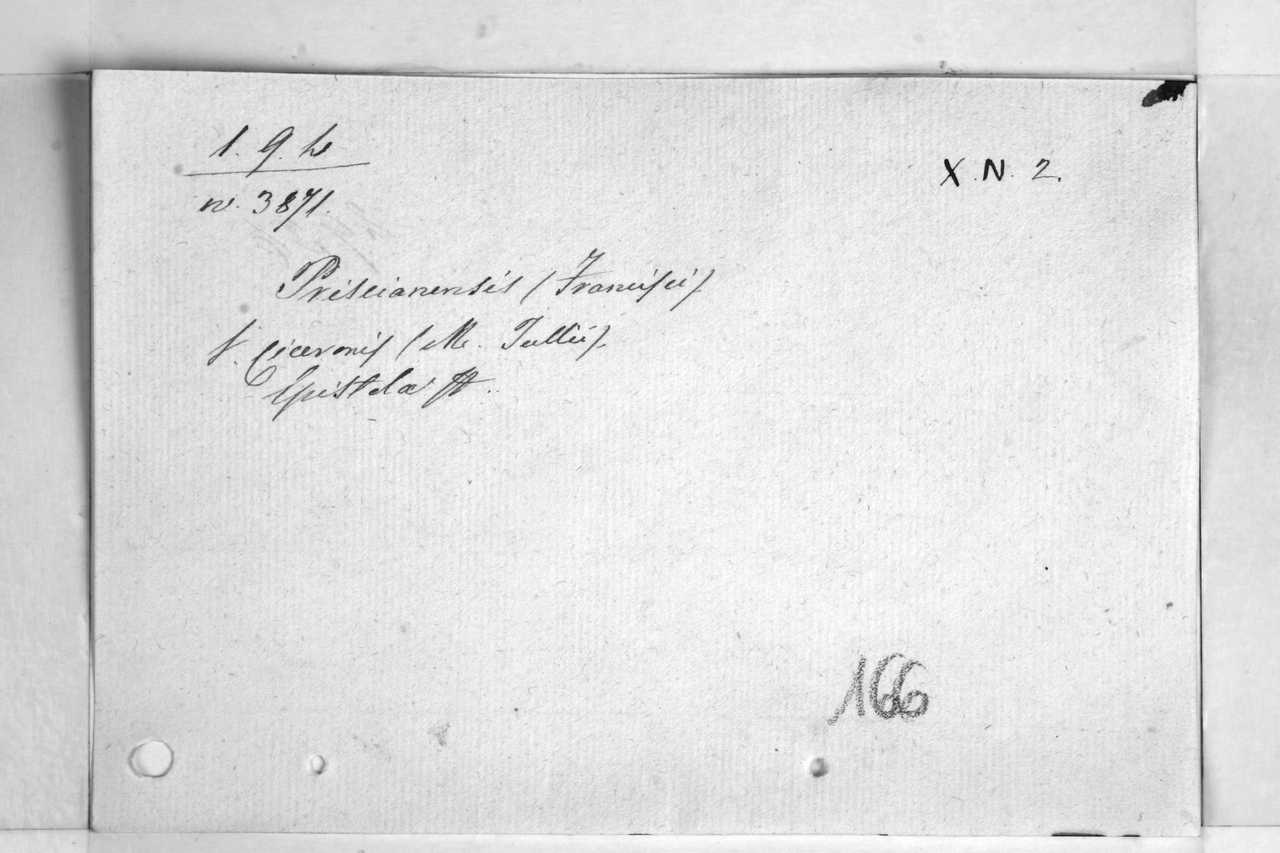 1. 9. h
X. N. 2.
n. 3871.
Priscianensis (Francisci)
v. Ciceronis (M. Tullii).
Epistolæ
166